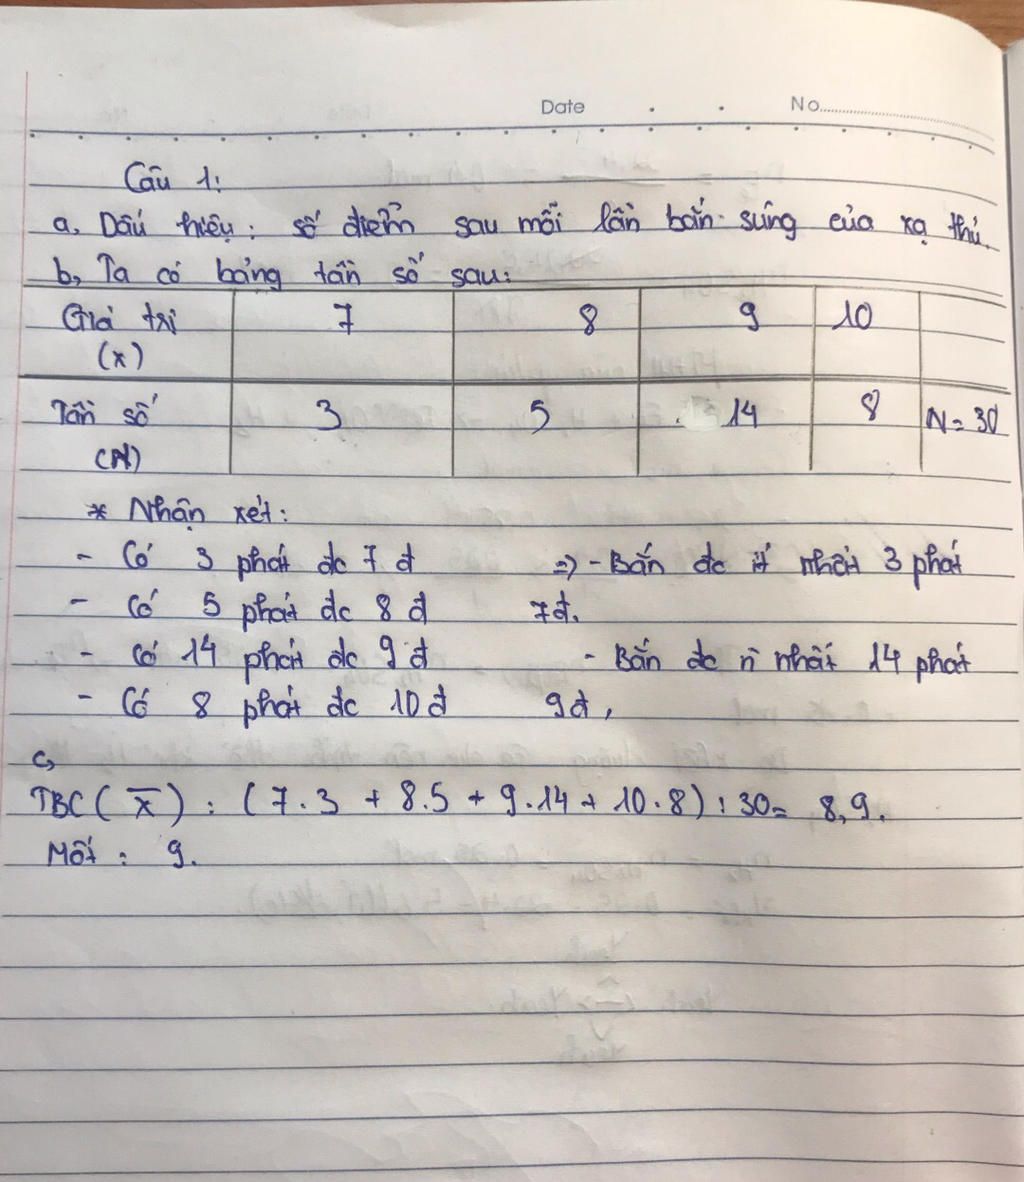 Date . . No
Câu 1:
a, Dấu hiệu : số điểm sau mỗi lần bắn súng của xạ thủ.
b, Ta có bảng tần số sau:
Giá trị (x) 7 8 9 10
Tần số (N) 3 5 14 8 N = 30
* Nhận xét:
- Có 3 phát đc 7 đ => - Bắn đc ít nhất 3 phát
- Có 5 phát đc 8 đ 7đ.
- Có 14 phát đc 9 đ - Bắn đc n` nhất 14 phát
- Có 8 phát đc 10 đ 9đ,
c,
TBC ( x̅ ) : ( 7.3 + 8.5 + 9.14 + 10.8 ) : 30 = 8,9.
Mốt : 9.